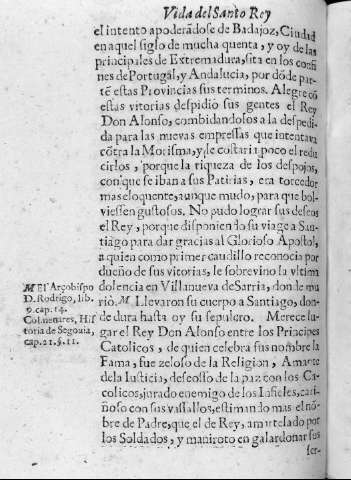 Vida del Santo Rey
el intento apoderãdose de Badajoz, Ciudad
en aquel siglo de mucha quenta, y oy de las
principales de Extremadura, sita en los confi
nes de Portugal, y Andalucia, por dõde par-
tẽ estas Provincias sus terminos. Alegre cõ
estas vitorias despidio sus gentes el Rey
Don Alonso, combidandolos a la despedi-
da para las nuevas empressas que intentava
cõtra la Morisma, y le costaria poco el redu
cirlos, porque la riqueza de los despojos,
con que se iban a sus Patrias, era torcedor
mas eloquente, aunque mudo, para que bol-
viessen gustosos. No pudo lograr sus deseos
el Rey, porque disponiendo su viage a San-
tiago para dar gracias al Glorioso Apostol,
a quien como primer caudillo reconocia por
dueño de sus vitorias, le sobrevino la ultima
dolencia en Villanueva de Sarria, donde mu
riò. M Llevaron su cuerpo a Santiago, don-
de dura hasta oy su sepulcro. Merece lu-
gar el Rey Don Alonso entre los Principes
Catolicos, de quien celebra sus nombre la
Fama, fue zeloso de la Religion, Amante
de la Iusticia, deseosso de la paz con los Ca-
colicos, jurado enemigo de los Infieles, cari-
ñoso con sus vassallos, estimando mas el nõ-
bre de Padre, que el de Rey, amartelado por
los Soldados, y maniroto en galardonar sus
ser-
M El Arçobispo
D. Rodrigo, lib.
9. cap. 14.
Colmenares, His
toria de Segovia,
cap. 21. §. 11.